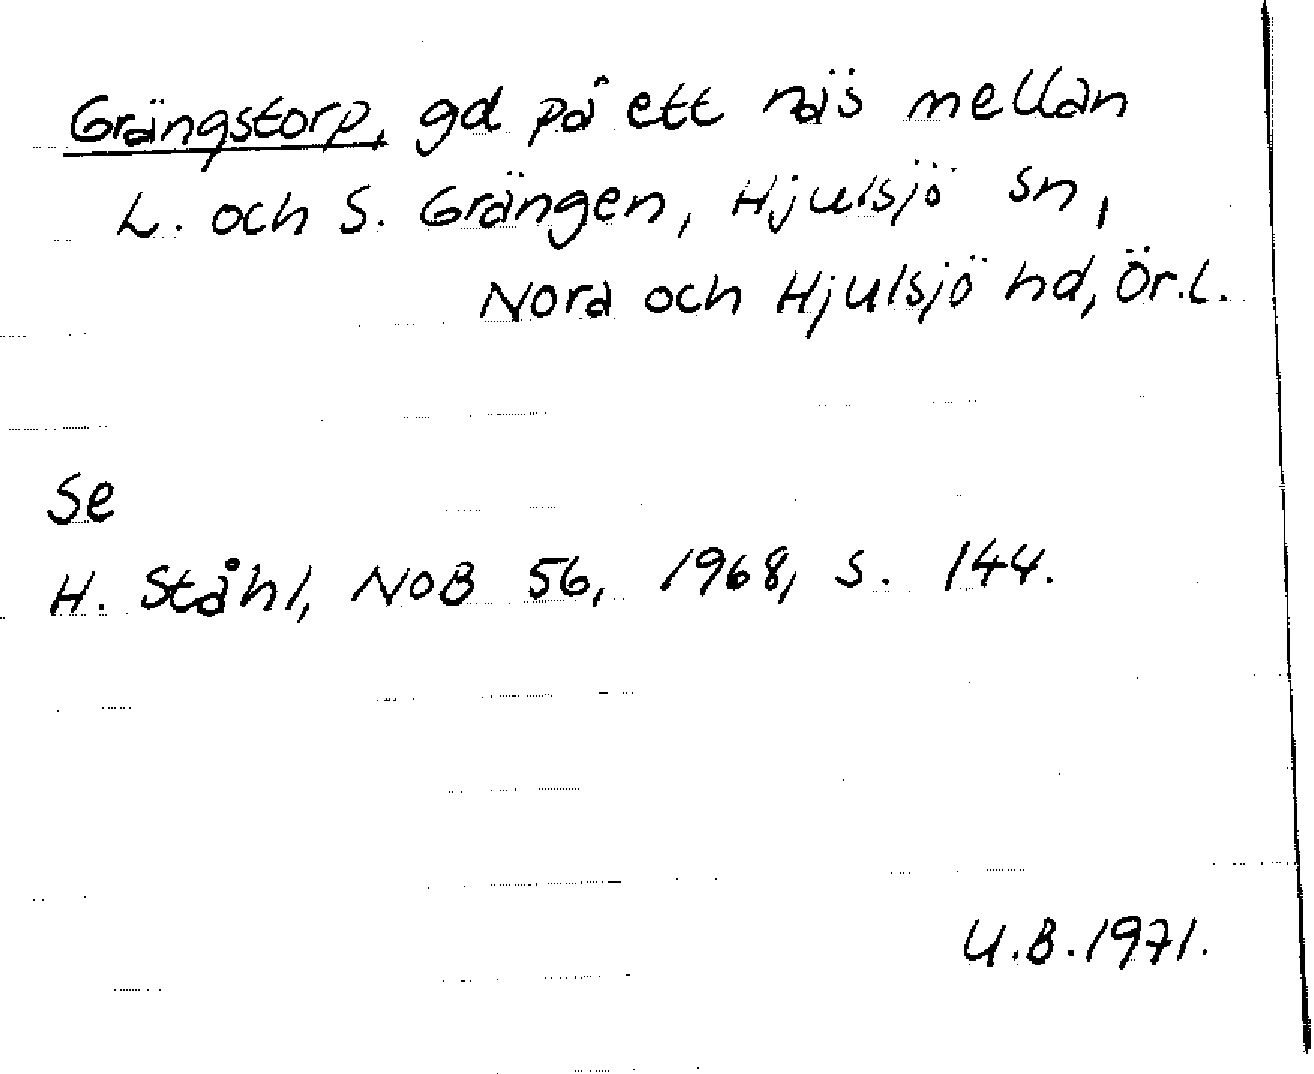 Grängstorp, gd på ett näs mellan
L. och S. Grängen, Hjulsjö sn,
Nora och Hjulsjö hd, Ör.l.
Se
H. Ståhl, NoB 56, 1968, s. 144.
U.B.1971.